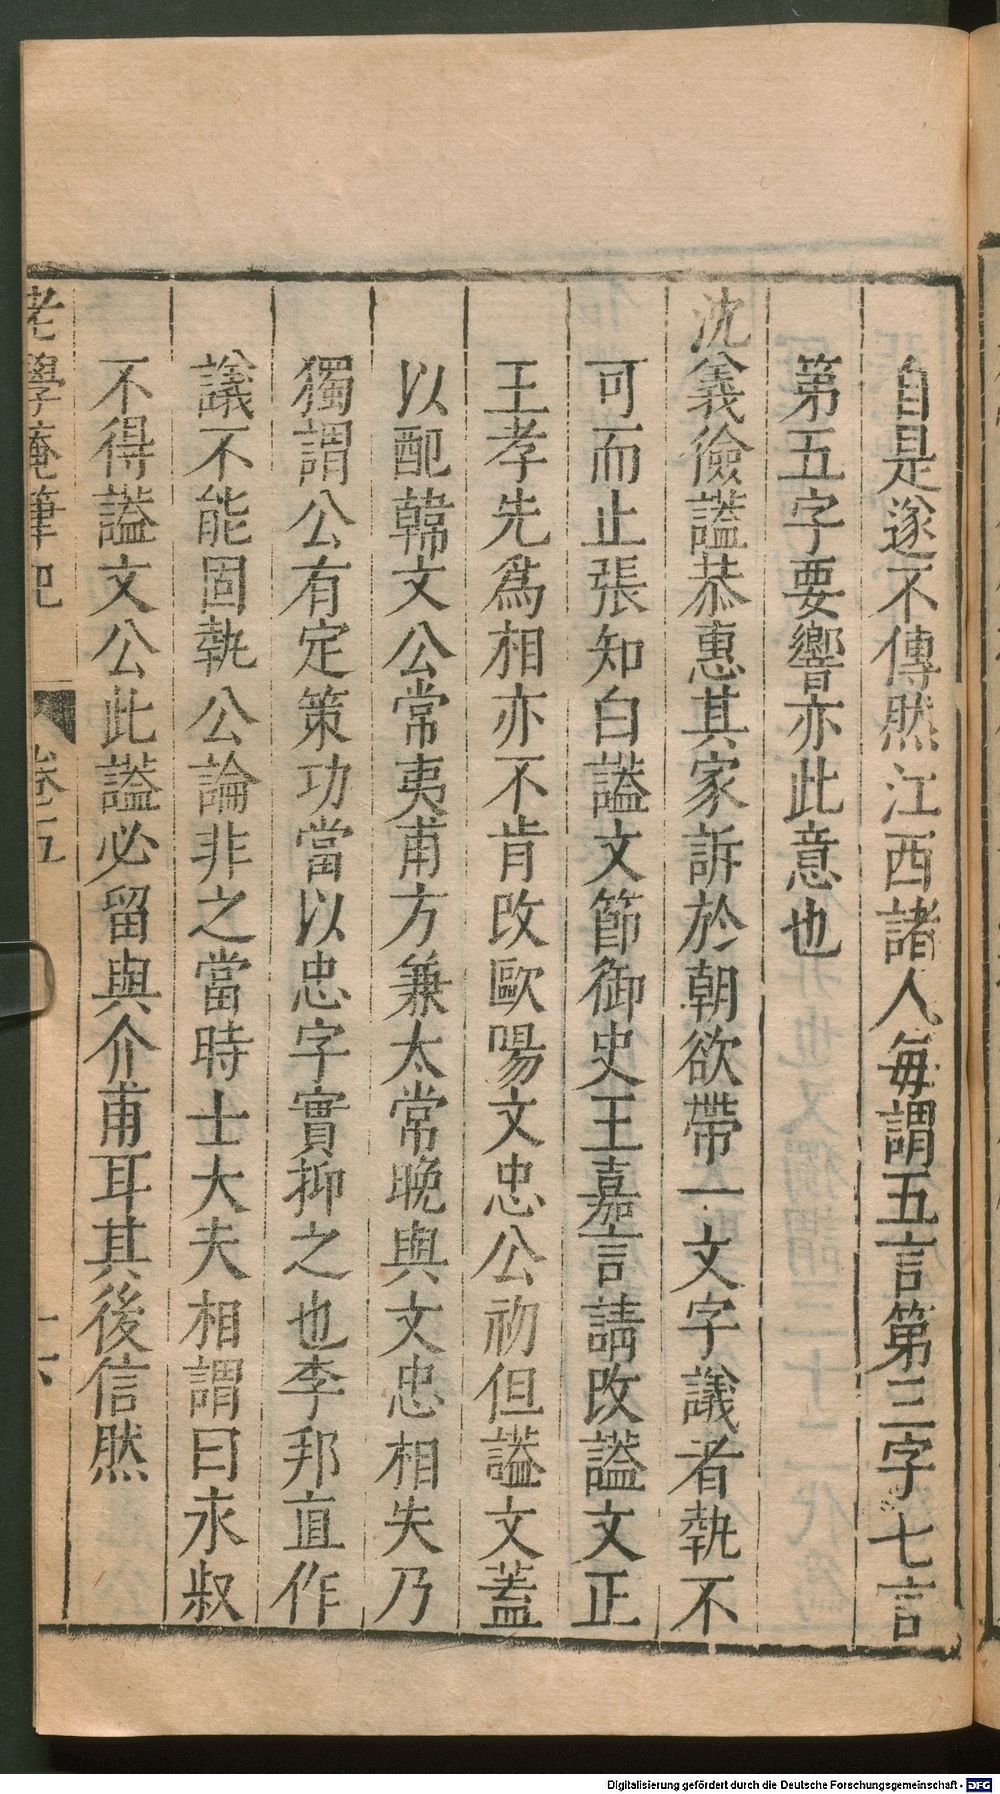 自是遂不傳然江西諸人每謂五言第三字七言
第五字要響亦此意也
沈義倫謚恭惠其家訴於朝欲帶一文字議者執不
可而止張知白謚文節御史王嘉言請改謚文正
王孝先爲相亦不肯改歐陽文忠公初但謚文蓋
以配韓文公常夷甫方兼太常晚與文忠相失乃
獨謂公有定策功當以忠字實抑之也李邦直作
議不能固執公論非之當時士大夫相謂曰永叔
不得謚文公此謚必留與介甫耳其後信然
老學庵筆記 卷五 十六
Digitalisierung gefördert durch die Deutsche Forschungsgemeinschaft - DFG